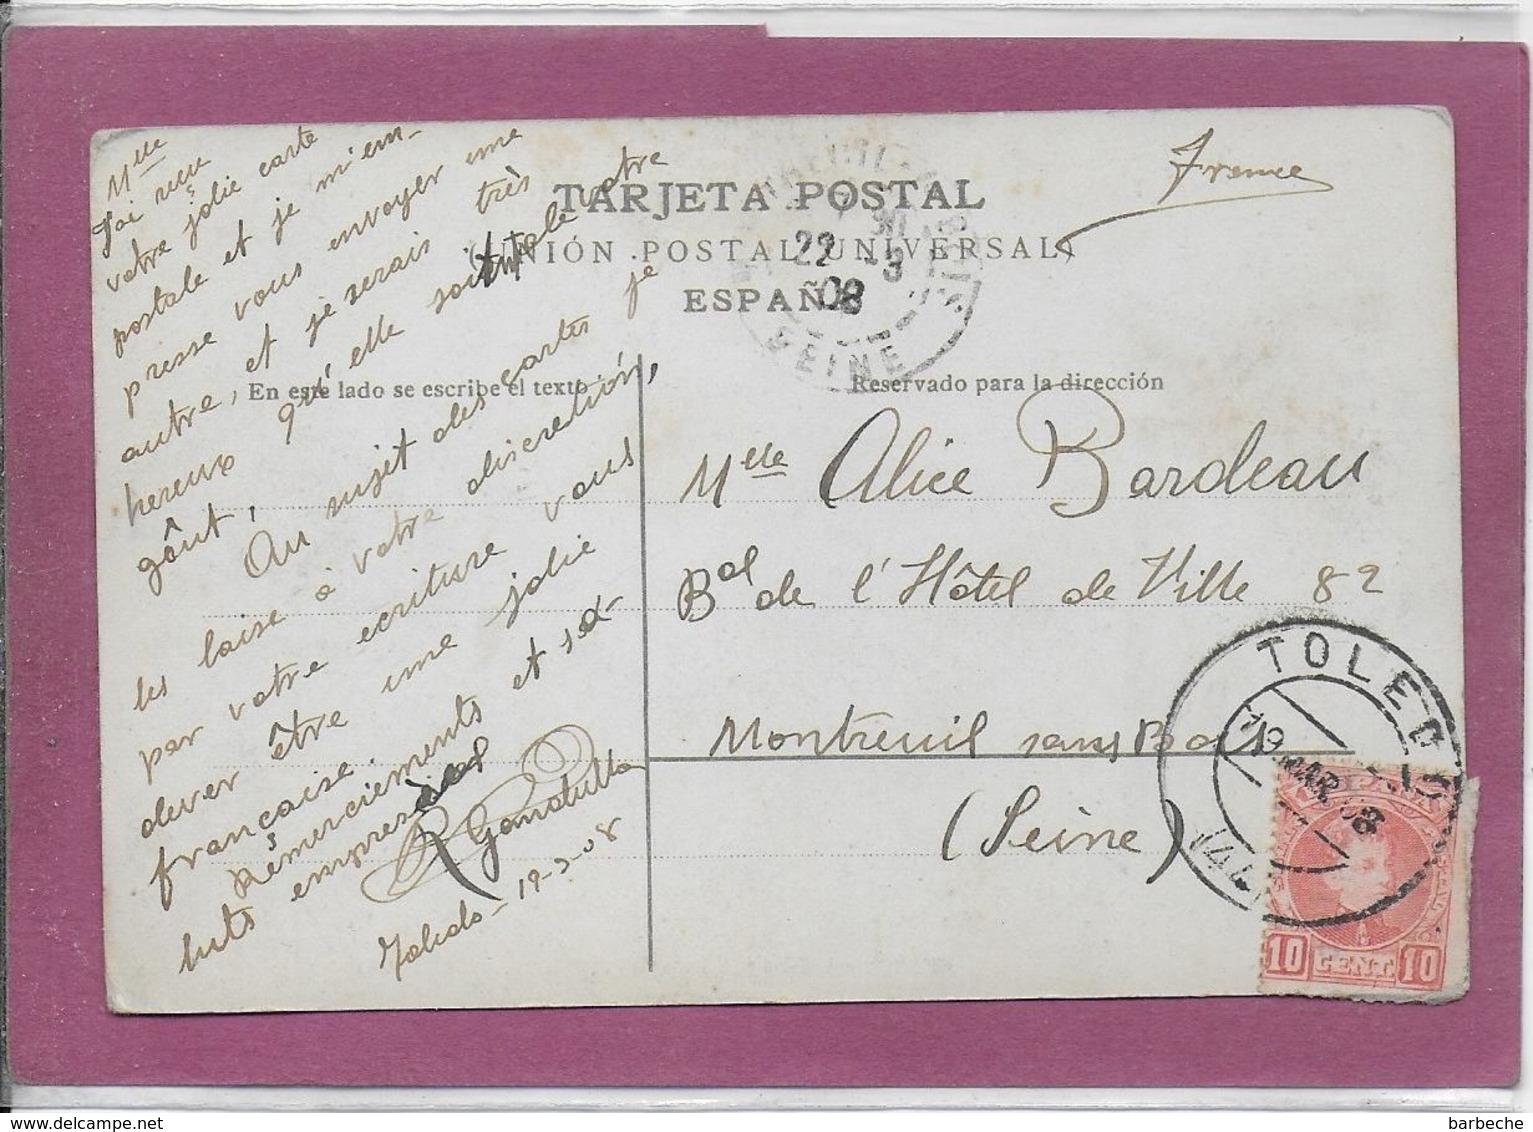 TARJETA POSTAL
(UNIÓN POSTAL UNIVERSAL)
ESPAÑA
En este lado se escribe el texto
Reservado para la dirección
France
Mlle
J'ai reçu
votre jolie carte
postale et je m'em-
presse vous envoyer une
autre, et je serais très
hereux qu'elle soit de votre
goût,
Au sujet des cartes je
les laise à votre discretión,
par votre ecriture vous
dever être une jolie
française.
Rémerciements et sa-
luts empresés
Toledo - 19-3-08
Melle Alice Bardeau
Bal de l'Hôtel de Ville 82
Montreuil sous Bois
(Seine)
22 -3
08
SEINE
TOLEDO
19 MAR 08
(44)
10 CENT. 10
barbeche